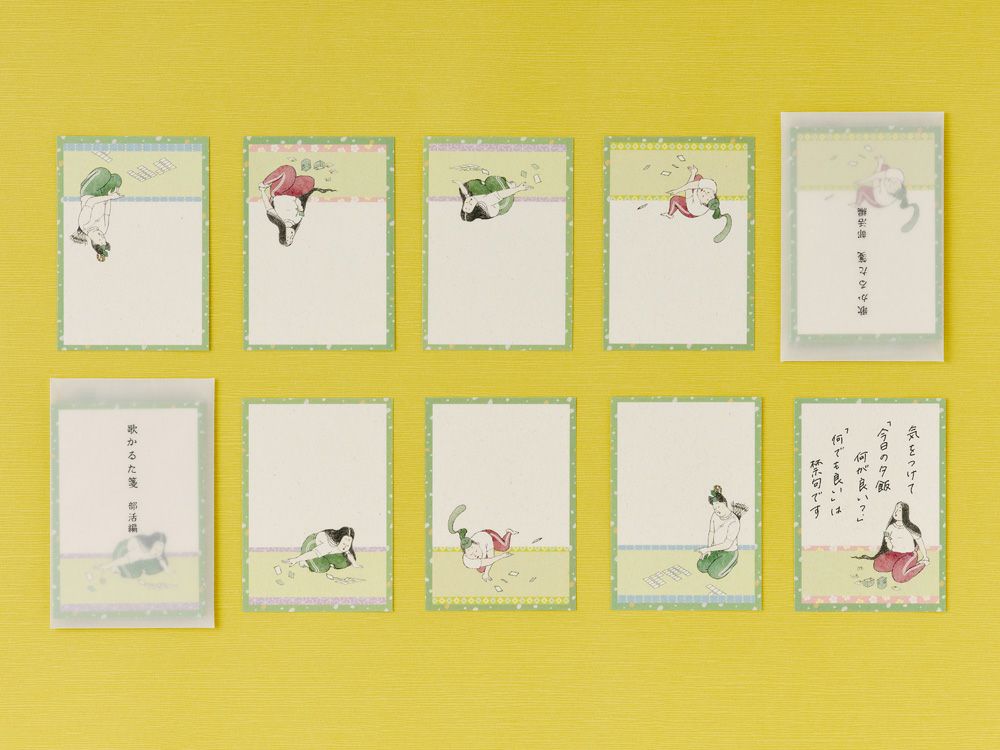 歌かるた箋 部活編
歌かるた箋 部活編
気をつけて
「今日の夕飯
何が良い?」
「何でも良い」は
禁句です